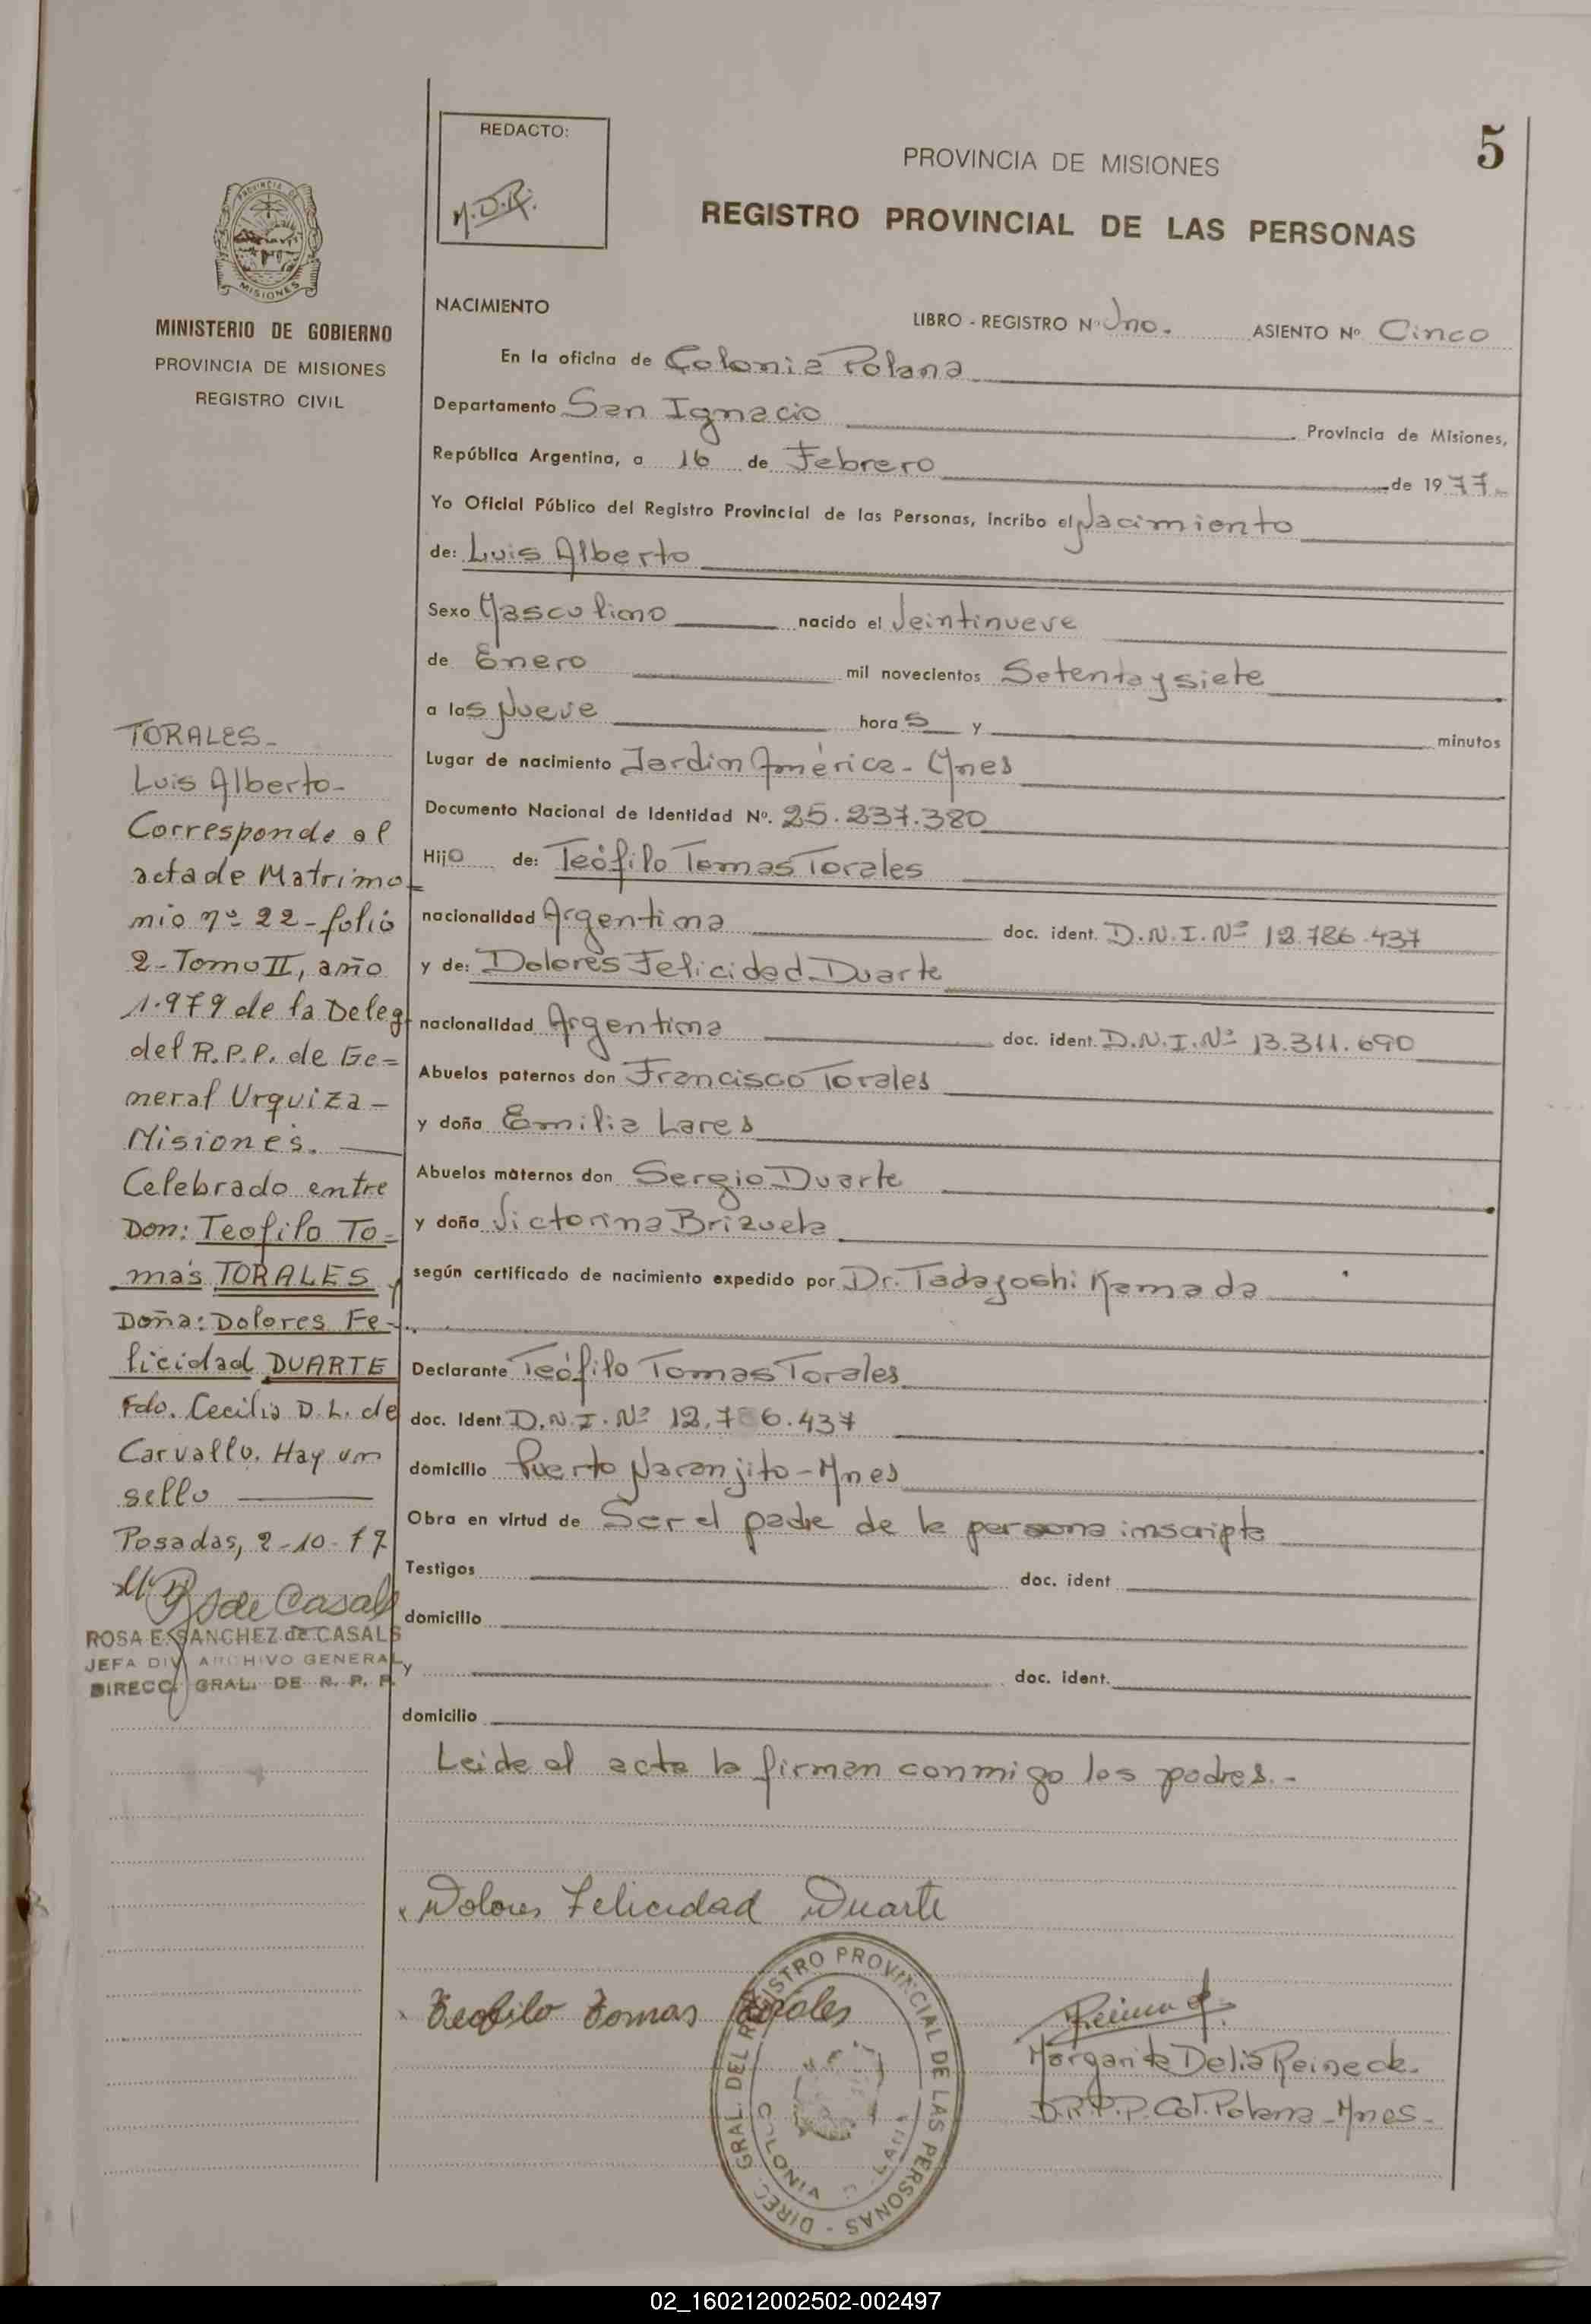 5
REDACTO:
M.D.R.
PROVINCIA DE MISIONES
REGISTRO PROVINCIAL DE LAS PERSONAS
PROVINCIA DE
MISIONES
MINISTERIO DE GOBIERNO
PROVINCIA DE MISIONES
REGISTRO CIVIL
NACIMIENTO
LIBRO - REGISTRO Nº Uno. ASIENTO Nº Cinco
En la oficina de Colonia Polana
Departamento San Ignacio Provincia de Misiones,
República Argentina, a 16 de Febrero de 1977
Yo Oficial Público del Registro Provincial de las Personas, incribo el Nacimiento
de: Luis Alberto
Sexo Masculino nacido el Veintinueve
de Enero mil novecientos Setenta y siete
a las Nueve horas y minutos
Lugar de nacimiento Jardin América - Mnes
Documento Nacional de Identidad Nº. 25.237.380
Hijo de: Teófilo Tomas Torales
nacionalidad Argentina doc. ident. D.N.I. Nº 12.786.437
y de: Dolores Felicidad Duarte
nacionalidad Argentina doc. ident. D.N.I. Nº 13.311.690
Abuelos paternos don Francisco Torales
y doña Emilia Lares
Abuelos maternos don Sergio Duarte
y doña Victorina Brizuela
según certificado de nacimiento expedido por Dr. Tadayoshi Kamada
Declarante Teófilo Tomas Torales
doc. Ident D.N.I. Nº 12.786.437
domicilio Puerto Naranjito - Mnes
Obra en virtud de Ser el padre de la persona inscripta
Testigos doc. ident
domicilio
y doc. ident.
domicilio
Leida el acta la firman conmigo los padres.-
Dolores Felicidad Duarte
Teofilo Tomas Torales
Margarita Delia Reineck
D.R.P.P. Col. Polana - Mnes -
DIREC. GRAL. DEL REGISTRO PROVINCIAL DE LAS PERSONAS -
COLONIA
TORALES -
Luis Alberto -
Corresponde al
acta de Matrimo-
nio nº 22 - folio
2 - Tomo II, año
1.979 de la Deleg.
del R.P.P. de Ge=
neral Urquiza -
Misiones.
Celebrado entre
Don: Teofilo To=
mas TORALES y
Doña: Dolores Fe-
licidad DUARTE
Fdo. Cecilia D. L. de
Carvallo. Hay un
sello
Posadas, 2-10-79
de Casals
ROSA E. SANCHEZ de CASALS
JEFA DIV ARCHIVO GENERAL
DIRECC. GRAL. DE R. P. P.
02_160212002502-002497